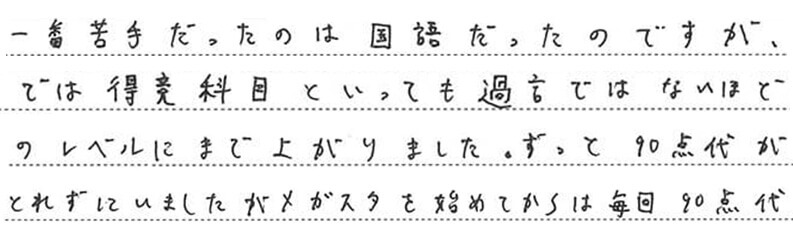 一番苦手だったのは国語だったのですが、
では得意科目といっても過言ではないほど
のレベルにまで上がりました。ずっと90点代が
とれずにいましたがメガスタを始めてからは毎回90点代